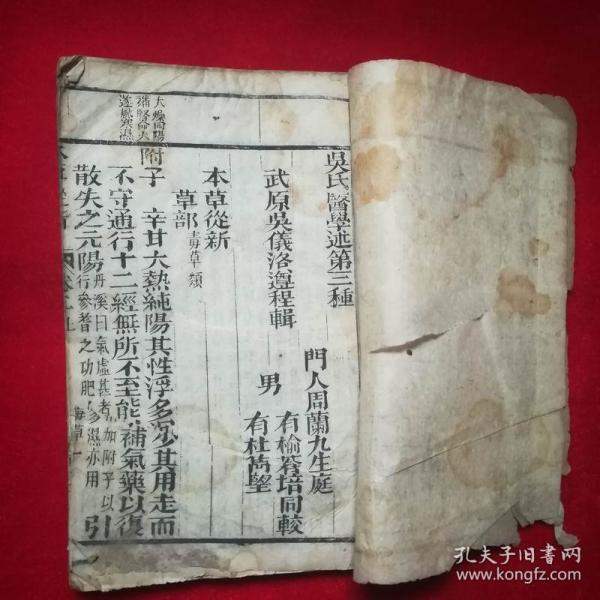 吳氏醫學述第三種
武原吳儀洛遵程輯
門人周蘭九生庭
男
有榆眘培同較
有杜萬墍
本草從新
草部 毒草類
大燥回陽
補腎命火
逐風寒濕
附子 辛甘大熱純陽其性浮多沉少其用走而
不守通行十二經無所不至能補氣藥以復
散失之元陽 丹溪曰氣虛甚者加附子以
行參蓍之功肥人多濕亦用
引
毒草一
孔夫子旧书网
www.kongfz.com